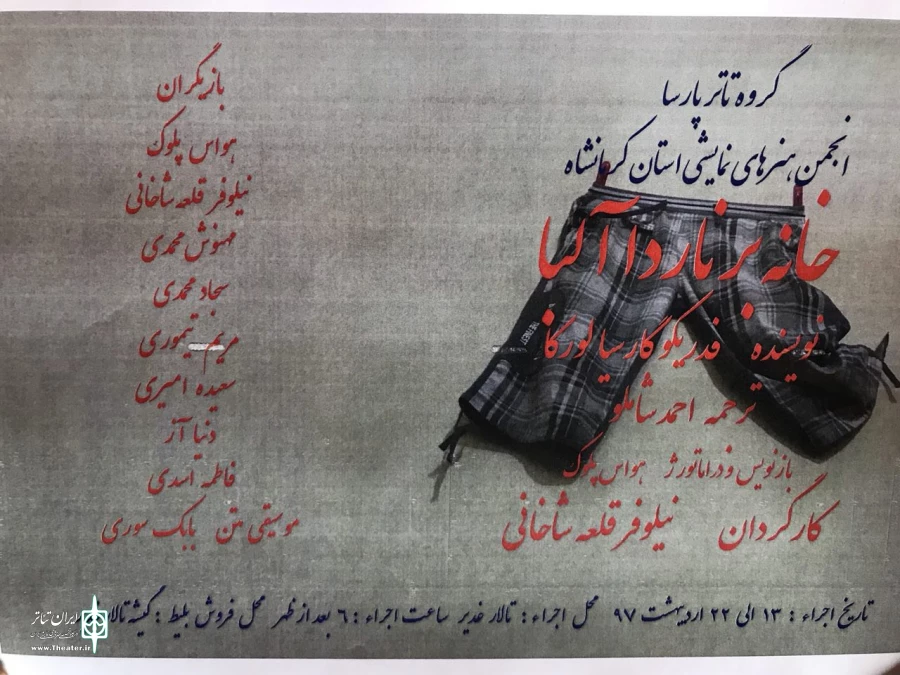 گروه تاتر پارسا
انجمن هنرهای نمایشی استان کرمانشاه
خانه برناردا آلبا
نویسنده فدریکو گارسیا لورکا
ترجمه احمد شاملو
بازنویس و دراماتورژ هواس پلوک
کارگردان نیلوفر قلعه شاخانی
بازیگران
هواس پلوک
نیلوفر قلعه شاخانی
مهنوش محمدی
سجاد محمدی
مریم تیموری
سعیده امیری
دنیا آژ
فاطمه اسدی
موسیقی متن بابک سوری
تاریخ اجراء : ۱۳ الی ۲۲ اردیبهشت ۹۷ محل اجراء : تالار غدیر ساعت اجراء : ۶ بعد از ظهر محل فروش بلیط : گیشه تالار
ایران تئاتر
www.Theater.ir